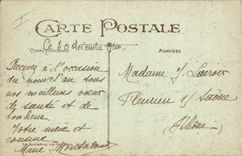 CARTE POSTALE
ADRESSE
le 20 décembre
Recevez à l'occasion
du nouvel an tous
nos meilleurs vœux
de santé et de
bonheur
Votre nièce et
cousine
Marie
Madame J. Lacroix
Fleurieu s/ Saône
(Rhône)